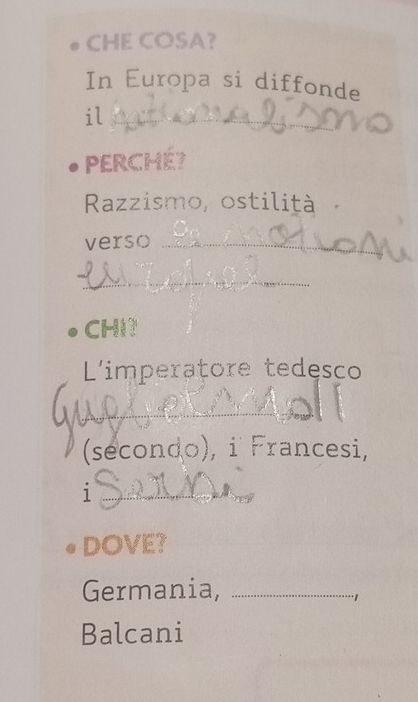 • CHE COSA?
In Europa si diffonde
il nazionalismo
• PERCHÉ?
Razzismo, ostilità
verso le nazioni
europee
• CHI?
L'imperatore tedesco
Guglielmo II
(secondo), i Francesi,
i Serbi
• DOVE?
Germania, ...............,
Balcani